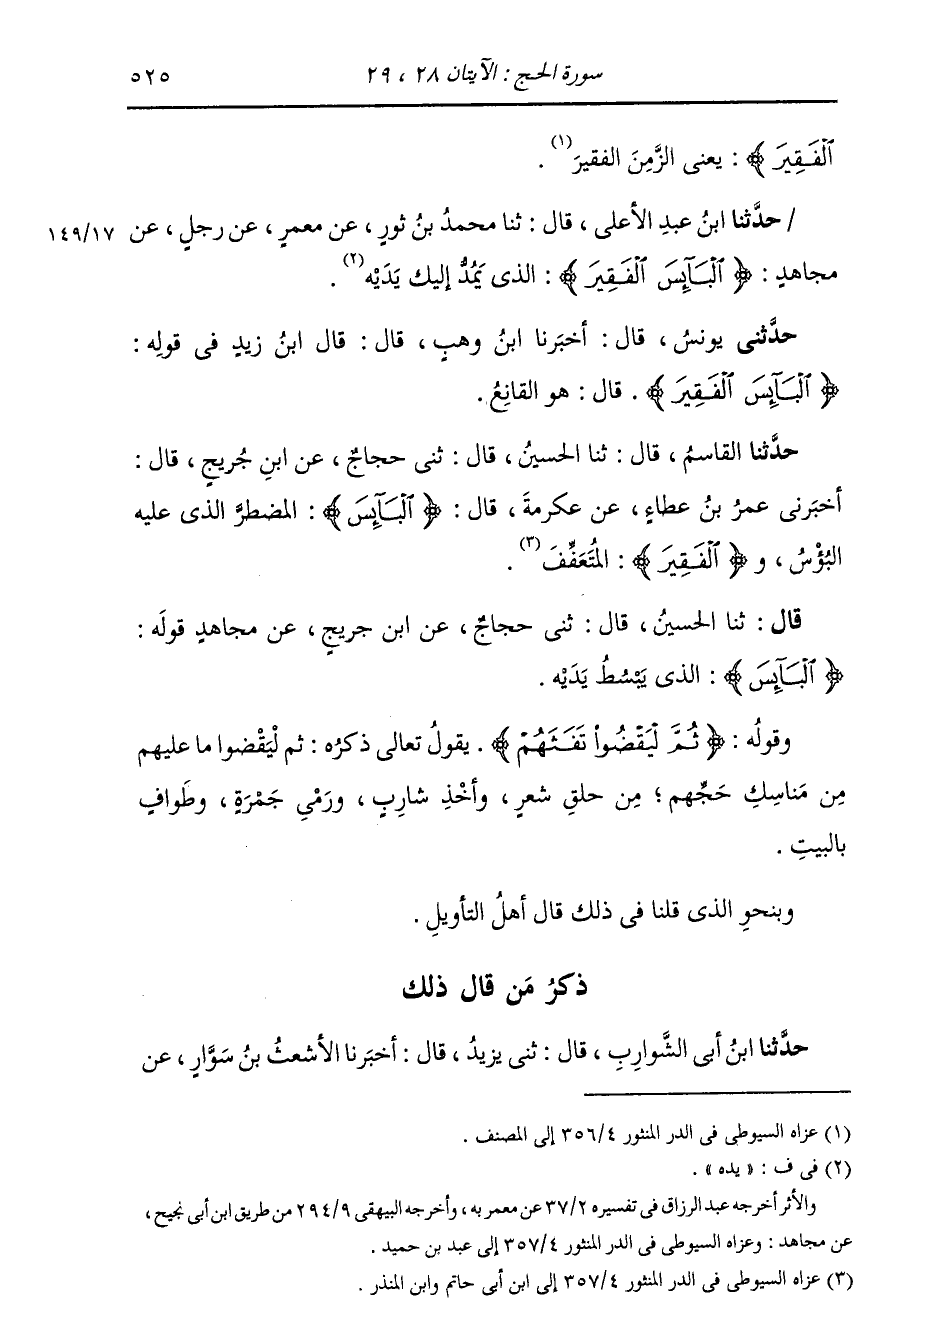 سورة الحج : الآيتان ٢٨ ، ٢٩ ٥٢٥
ٱلْفَقِيرَ ﴾ : يعنى الزَّمِنَ الفقيرَ(١) .
/ حدَّثنا ابنُ عبدِ الأعلى ، قال : ثنا محمدُ بنُ ثورٍ ، عن معمرٍ ، عن رجلٍ ، عن ١٤٩/١٧
مجاهدٍ : ﴿ ٱلْبَآئِسَ ٱلْفَقِيرَ ﴾ : الذى يَمُدُّ إليك يَدَيْه(٢) .
حدَّثنى يونسُ ، قال : أخبَرنا ابنُ وهبٍ ، قال : قال ابنُ زيدٍ فى قولِه :
﴿ ٱلْبَآئِسَ ٱلْفَقِيرَ ﴾ . قال : هو القانِعُ .
حدَّثنا القاسمُ ، قال : ثنا الحسينُ ، قال : ثنى حجاجٌ ، عن ابنِ جُريجٍ ، قال :
أخبَرنى عمرُ بنُ عطاءٍ ، عن عكرمةَ ، قال : ﴿ ٱلْبَآئِسَ ﴾ : المضطرَّ الذى عليه
البُؤْسُ ، و ﴿ ٱلْفَقِيرَ ﴾ : المُتَعَفِّفَ(٣) .
قال : ثنا الحسينُ ، قال : ثنى حجاجٌ ، عن ابن جريجٍ ، عن مجاهدٍ قولَه :
﴿ ٱلْبَآئِسَ ﴾ : الذى يَبْسُطُ يَدَيْه .
وقولُه : ﴿ ثُمَّ لْيَقْضُوا۟ تَفَثَهُمْ ﴾ . يقولُ تعالى ذكرُه : ثم لْيَقْضوا ما عليهم
مِن مَناسِكِ حَجِّهم ؛ مِن حلقِ شعرٍ ، وأخْذِ شاربٍ ، ورَمْيِ جَمْرَةٍ ، وطَوافٍ
بالبيتِ .
وبنحوِ الذى قلنا فى ذلك قال أهلُ التأويلِ .
ذكرُ مَن قال ذلك
حدَّثنا ابنُ أبى الشَّواربِ ، قال : ثنى يزيدُ ، قال : أخبَرنا الأشعثُ بنُ سَوَّارٍ ، عن
(١) عزاه السيوطى فى الدر المنثور ٣٥٦/٤ إلى المصنف .
(٢) فى ف : « يده » .
والأثر أخرجه عبد الرزاق فى تفسيره ٣٧/٢ عن معمر به ، وأخرجه البيهقى ٢٩٤/٩ من طريق ابن أبى نجيح ،
عن مجاهد : وعزاه السيوطى فى الدر المنثور ٣٥٧/٤ إلى عبد بن حميد .
(٣) عزاه السيوطى فى الدر المنثور ٣٥٧/٤ إلى ابن أبى حاتم وابن المنذر .